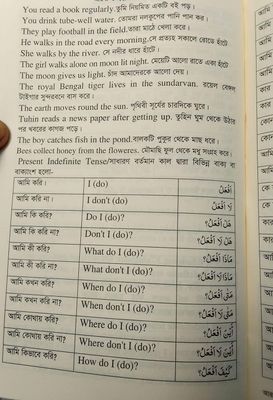 You read a book regularly. তুমি নিয়মিত একটি বই পড়।
You drink tube-well water. তোমরা নলকূপের পানি পান কর।
They play football in the field. তারা মাঠে খেলা করে।
He walks in the road every morning. সে প্রত্যহ সকালে রোডে হাঁটে
She walks by the river. সে নদীর ধারে হাঁটে।
The girl walks alone on moon lit night. মেয়েটি আলো রাতে একা হাঁটে
The moon gives us light. চাঁদ আমাদেরকে আলো দেয়।
The royal Bengal tiger lives in the sundarban. রয়েল বেঙ্গল
টাইগার সুন্দরবনে বাস করে।
The earth moves round the sun. পৃথিবী সূর্যের চারদিকে ঘুরে।
Tuhin reads a news paper after getting up. তুহিন ঘুম থেকে উঠার
পর খবরের কাগজ পড়ে।
The boy catches fish in the pond. বালকটি পুকুর থেকে মাছ ধরে।
Bees collect honey from the floweres. মৌমাছি ফুল থেকে মধু সংগ্রহ করে।
Present Indefinite Tense/সাধারণ বর্তমান কাল দ্বারা বিভিন্ন বাক্য বা
বাক্যাংশ হলো-
আমি করি। I (do) أَفْعَلُ
আমি করি না। I don't (do) لَا أَفْعَلُ
আমি কি করি? Do I (do)? هَلْ أَفْعَلُ؟
আমি কি করি না? Don't I (do)? هَلْ لَا أَفْعَلُ؟
আমি কী করি? What do I (do)? مَاذَا أَفْعَلُ؟
আমি কী করি না? What don't I (do)? مَاذَا لَا أَفْعَلُ؟
আমি কখন করি? When do I (do)? مَتَى أَفْعَلُ؟
আমি কখন করি না? When don't I (do)? مَتَى لَا أَفْعَلُ؟
আমি কোথায় করি? Where do I (do)? أَيْنَ أَفْعَلُ؟
আমি কোথায় করি না? Where don't I (do)? أَيْنَ لَا أَفْعَلُ؟
আমি কিভাবে করি? How do I (do)? كَيْفَ أَفْعَلُ؟